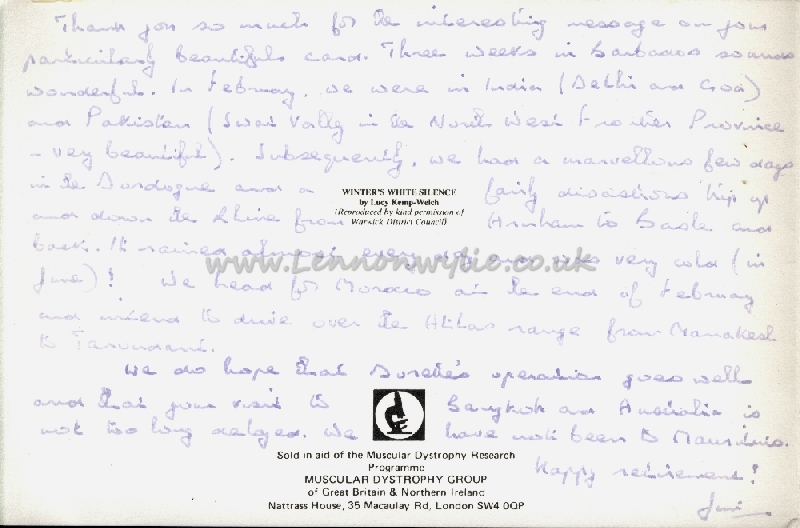 Thank you so much for the interesting message on your
particularly beautiful card. Three weeks in Barbados sounds
wonderful. In February, we were in India (Delhi and Goa)
and Pakistan (Swat Valley in the North West Frontier Province
- very beautiful). Subsequently, we had a marvellous few days
in the Dordogne and a fairly disastrous trip up
WINTER'S WHITE SILENCE
by Lucy Kemp-Welch
(Reproduced by kind permission of
Warwick District Council)
and down the Rhine from Arnham to Basle and
back. It rained almost every day and was very cold (in
www.Lennonwylie.co.uk
June)! We head for Morocco at the end of February
and intend to drive over the Atlas range from Marrakesh
to
We do hope that operation goes well
and that your visit to Bangkok and Australia is
not too long delayed. We have not been to Mauritius.
Sold in aid of the Muscular Dystrophy Research
Programme
MUSCULAR DYSTROPHY GROUP
of Great Britain & Northern Ireland
Nattrass House, 35 Macaulay Rd, London SW4 0QP
Happy retirement!